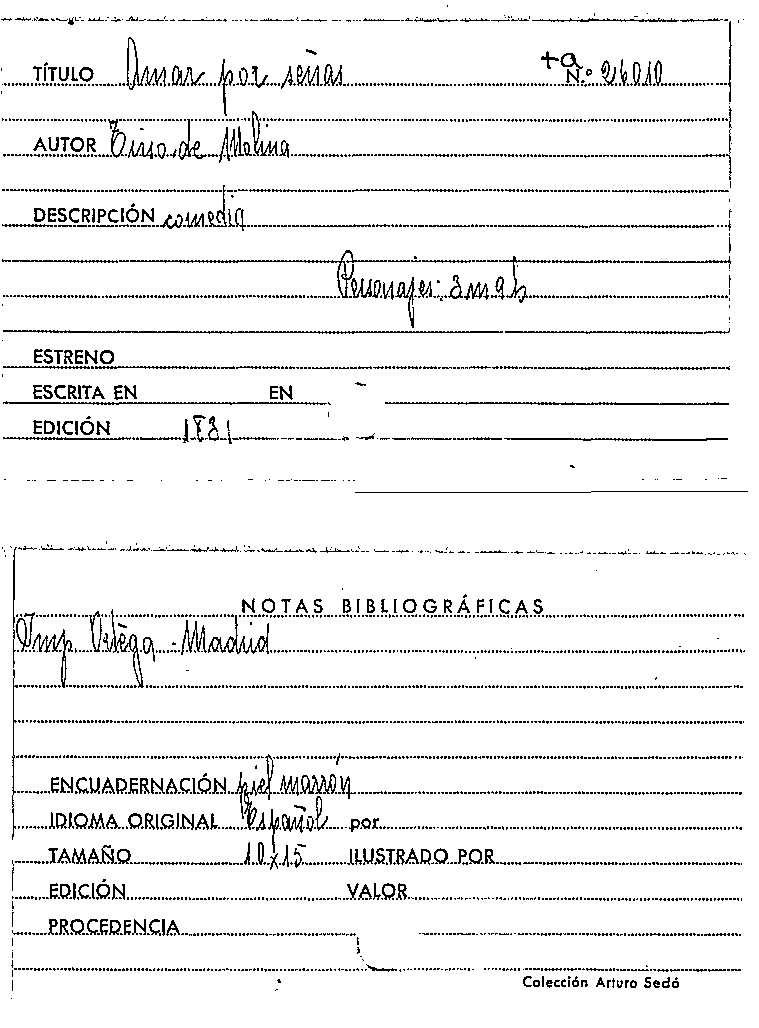 TÍTULO Amar por señas +a N.º 26010
AUTOR Tirso de Molina
DESCRIPCIÓN comedia
Personajes: 3m 9h
ESTRENO
ESCRITA EN EN
EDICIÓN 1831
NOTAS BIBLIOGRÁFICAS
Imp. Ortega - Madrid
ENCUADERNACIÓN piel marrón
IDIOMA ORIGINAL Español por
TAMAÑO 10x15 ILUSTRADO POR
EDICIÓN VALOR
PROCEDENCIA
Colección Arturo Sedó